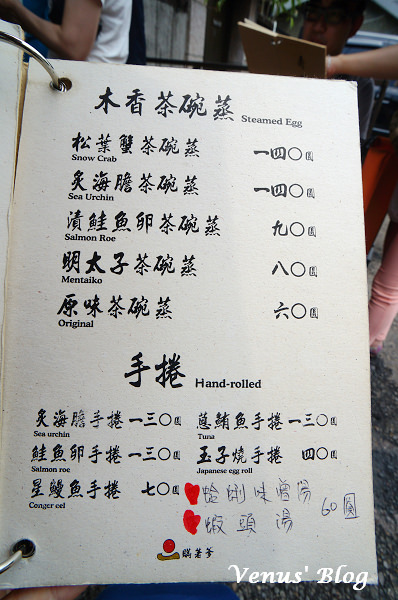 木香茶碗蒸 Steamed Egg
松葉蟹茶碗蒸 一四〇圓
Snow Crab
炙海膽茶碗蒸 一四〇圓
Sea Urchin
漬鮭魚卵茶碗蒸 九〇圓
Salmon Roe
明太子茶碗蒸 八〇圓
Mentaiko
原味茶碗蒸 六〇圓
Original
手捲 Hand-rolled
炙海膽手捲 一三〇圓 蔥鮪魚手捲 一三〇圓
Sea urchin Tuna
鮭魚卵手捲 一三〇圓 玉子燒手捲 四〇圓
Salmon roe Japanese egg roll
星鰻魚手捲 七〇圓
Conger eel
蛤蜊味噌湯
蝦頭湯 60圓
瞞著爹
Venus' Blog